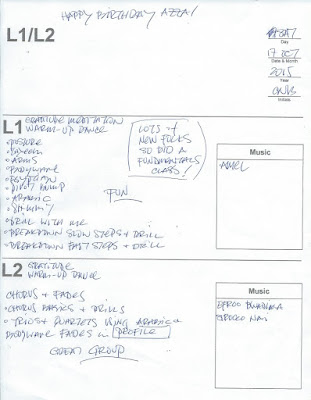 HAPPY BIRTHDAY AZZA!
L1/L2
Day
17 OCT
Date & Month
2015
Year
Initials
L1 GRATITUDE MEDITATION
WARM-UP DANCE
• POSTURE
• ARMS
• EGYPTIAN
• PIVOT BUMP
• ARABIC
• SHIMMY
• DRILL WITH ME
• BREAKDOWN SLOW STEPS + DRILL
• BREAKDOWN FAST STEPS + DRILL
LOTS of
NEW FOLKS
SO DID A
FUNDAMENTALS
CLASS!
FUN
Music
AMEL
L2 GRATITUDE
WARM-UP DANCE
CHORUS + FADES
• CHORUS BASICS + DRILLS
• TRIOS + QUARTETS USING ARABICS
FADES in PROFILE
GREAT GROUP
Music